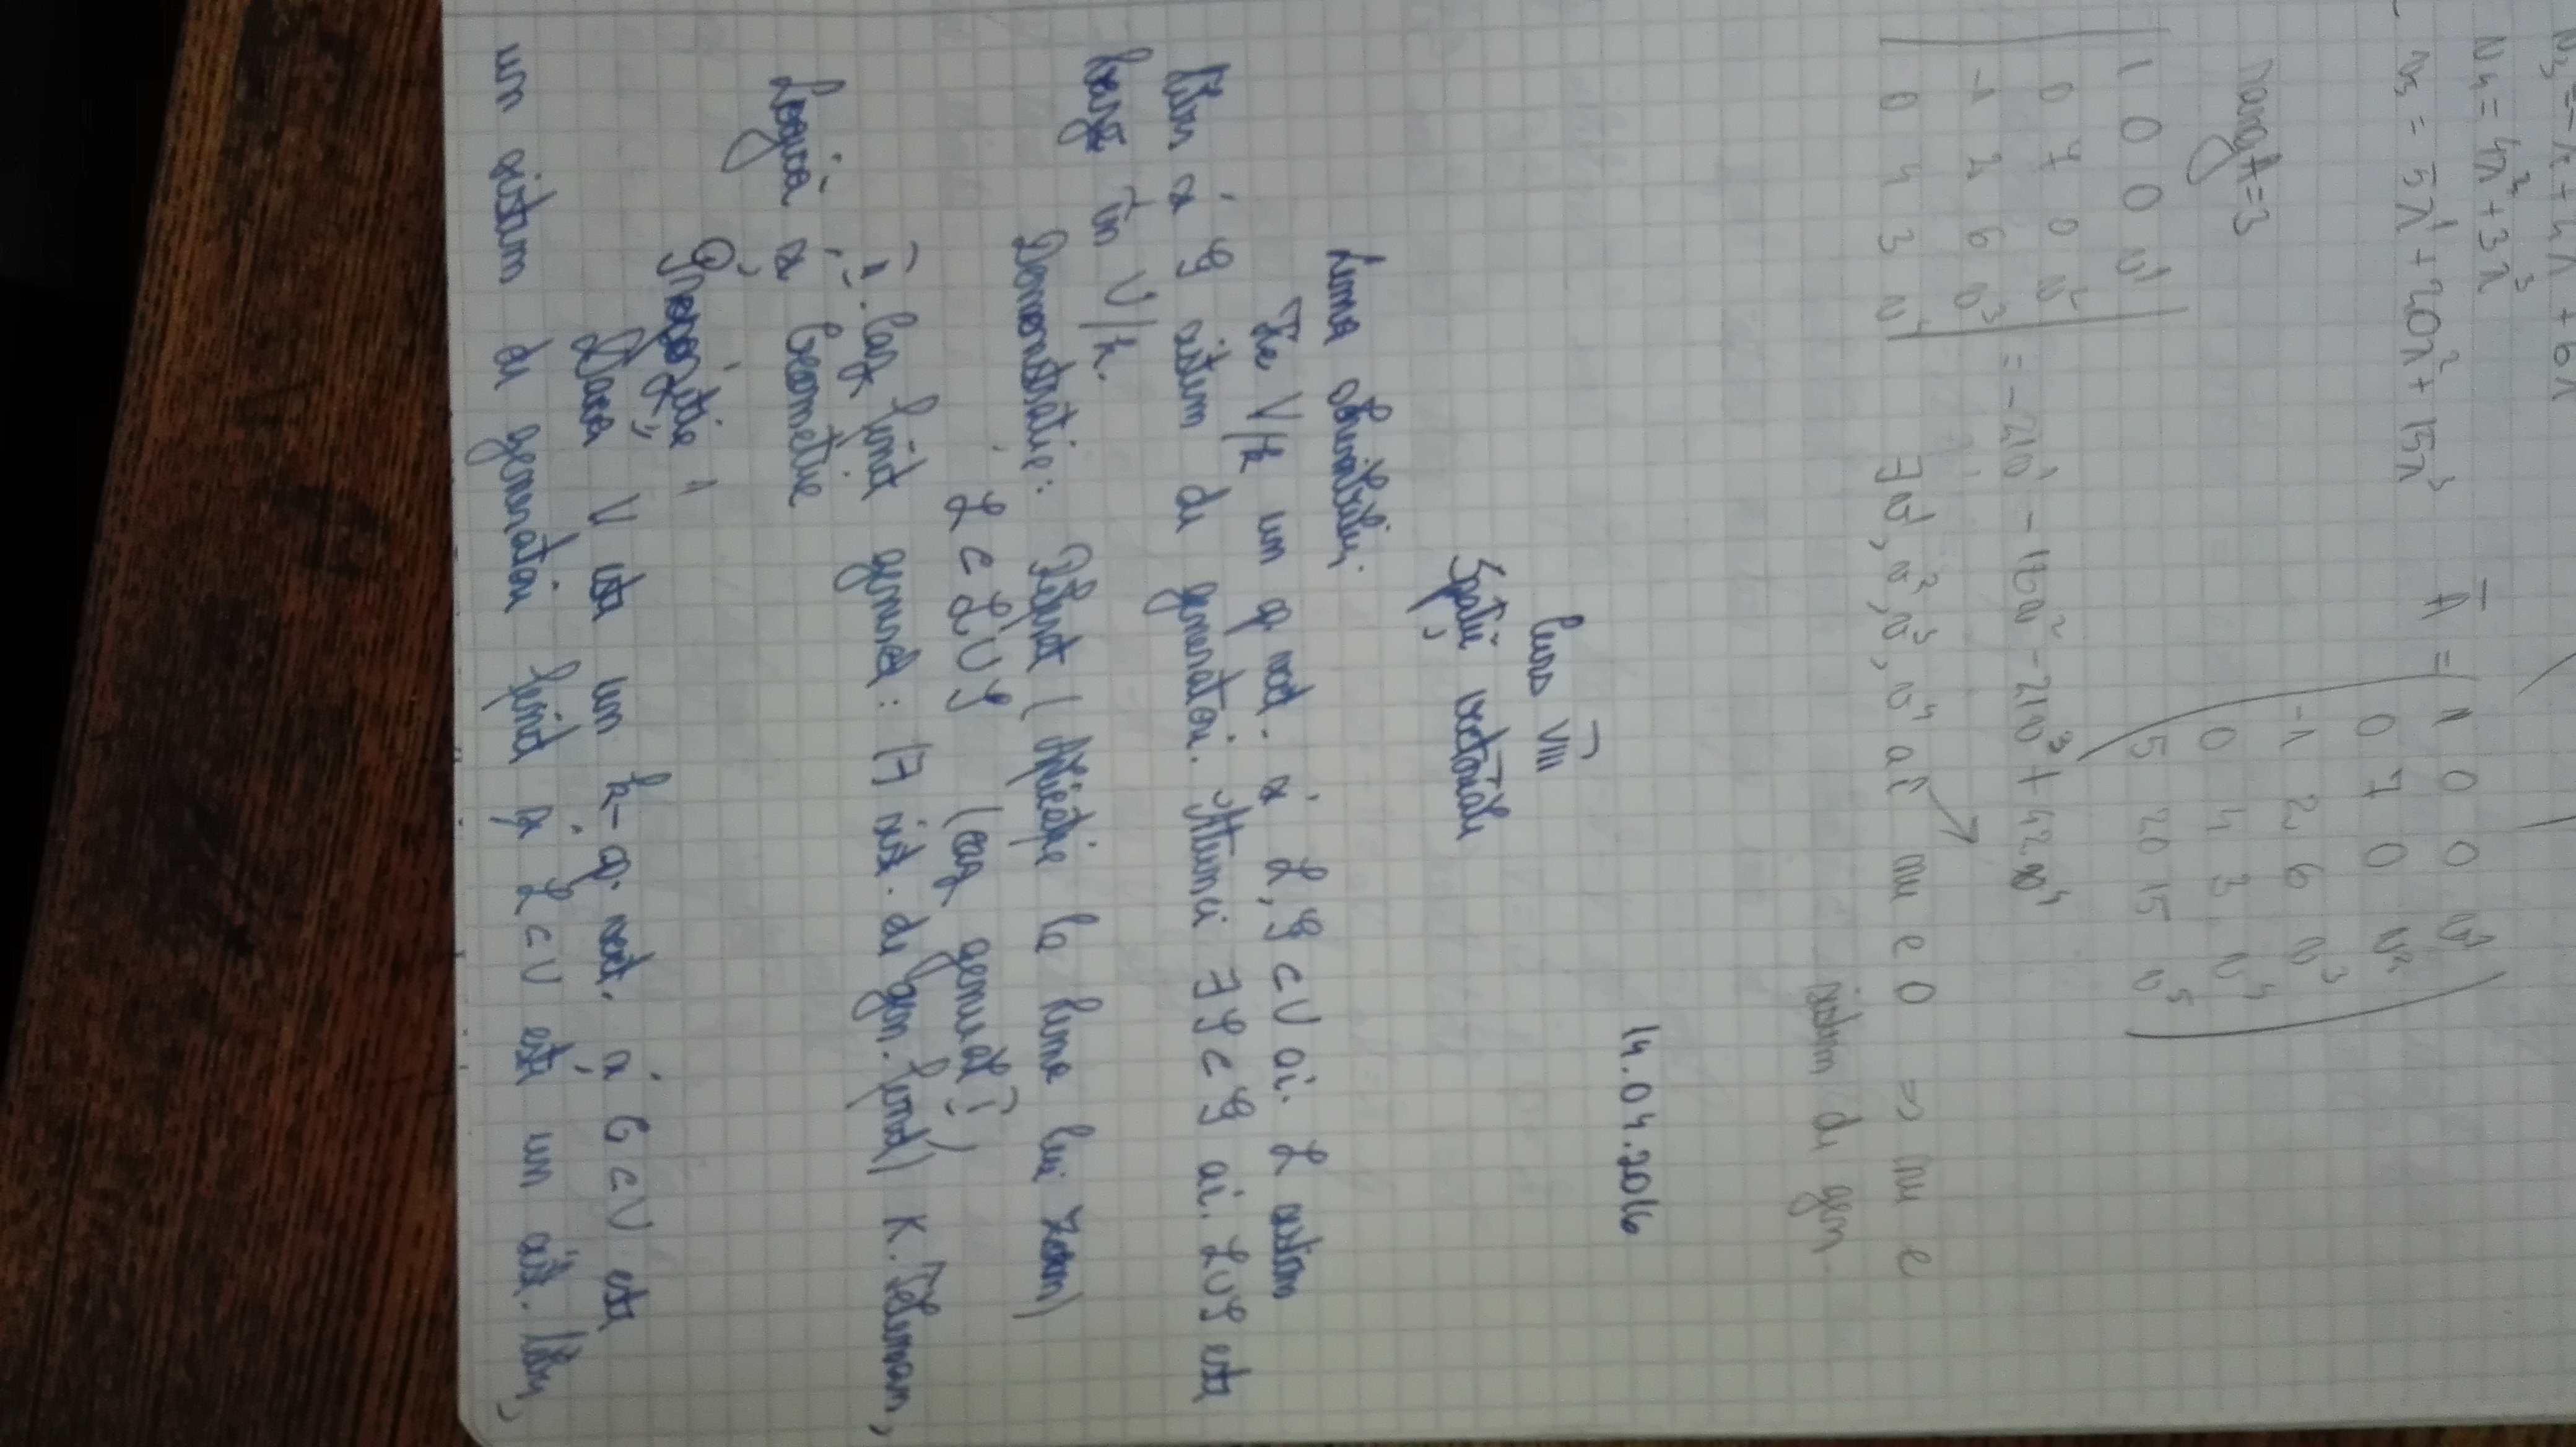 v₃ = -λ¹ + 4λ² + 6λ
v₄ = 4λ² + 3λ³
v₅ = 5λ¹ + 20λ² + 15λ³
Ā = ( 1 0 0 v¹
0 7 0 v²
-1 2 6 v³
0 4 3 v⁴
5 20 15 v⁵ )
rang A = 3
| 1 0 0 v¹
0 7 0 v²
-1 2 6 v³
0 4 3 v⁴ | = -21v¹ - 12v² - 21v³ + 42v⁴
∃ v¹, v², v³, v⁴ aî nu e 0 => nu e
sistem de gen
14.04.2016
Curs VIII
Spații vectoriale
Lema
Fie V/k un sp vect. și L, G ⊂ V aî. L sistem
liniar și G sistem de generatori. Atunci ∃ S ⊂ G aî. L∪S este
bază în V/k.
Demonstrație: Răsput ( Aplicație la lema lui Zorn)
L ⊂ L∪S (caz general)
î. Caz finit generat: (∃ sist. de gen. finit) K. Teleman,
Logică și Geometrie
Propoziție 1
Dacă V este un k-sp. vect. și G ⊂ V este
un sistem de generatori finit și L ⊂ V este un sist. lin,